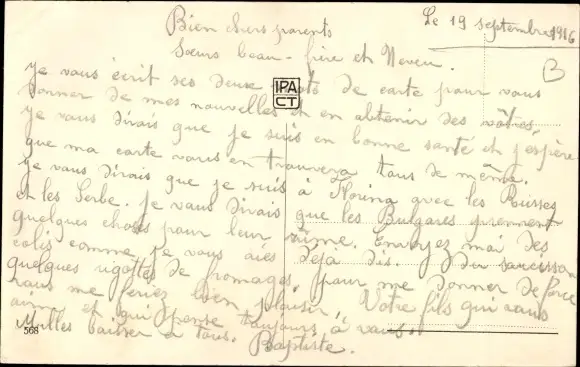 Le 19 septembre 1916
Bien chers parents
Sœurs beau-frère et Neveu.
B
je vous écrit ses deux mots de carte pour vous
donner de mes nouvelles et en obtenir des vôtres,
je vous dirais que je suis en bonne santé et j'espère
que ma carte vous en trouvera tous de même.
je vous dirais que je suis à Florina avec les Russes
et les Serbe. je vous dirais que les Bulgares prennent
quelques choses pour leur rûme. Envoyez moi des
colis comme je vous aies déjà dis. Du saucisson
quelques rigottes de fromages, pour me donner de force
vous me feriez bien plaisir. Votre fils qui vous
aime et qui pense toujours à vous.
Milles baiser a tous. Baptiste.
IPA
CT
568